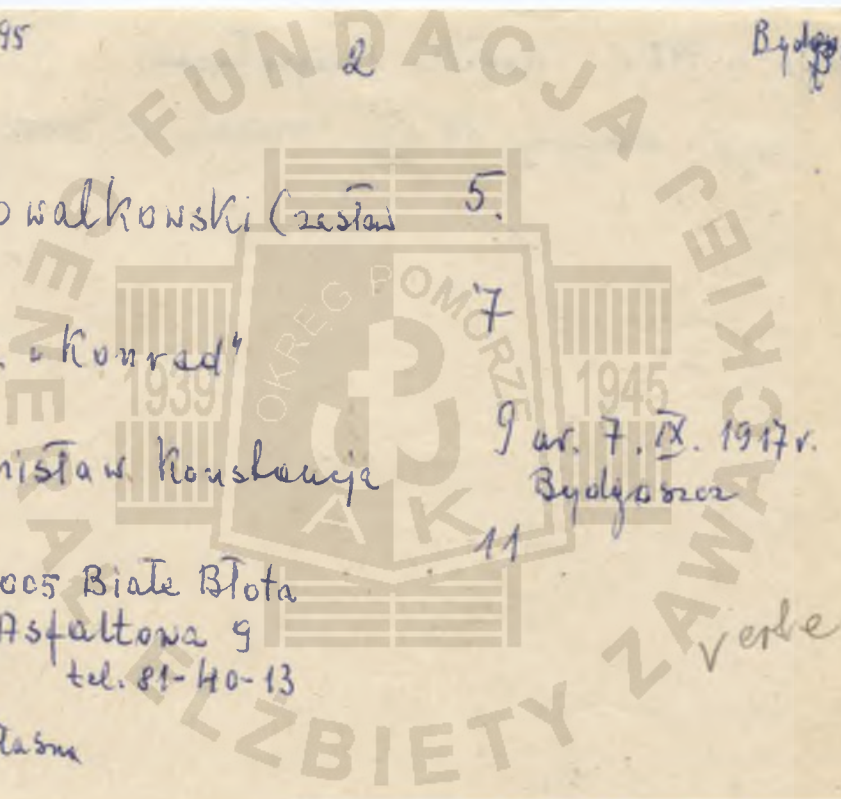 95 2
owalkowski (zesław 5.
7
. „Konrad"
9 ur. 7. IX. 1917 r.
nisław. Konstancja
Bydgoszcz
11
005 Białe Błota
Asfaltowa 9
tel. 81-40-13
łasna
FUNDACJA GENERAŁ ELŻBIETY ZAWACKIEJ
OKRĘG POMORZE
1939 1945
AK